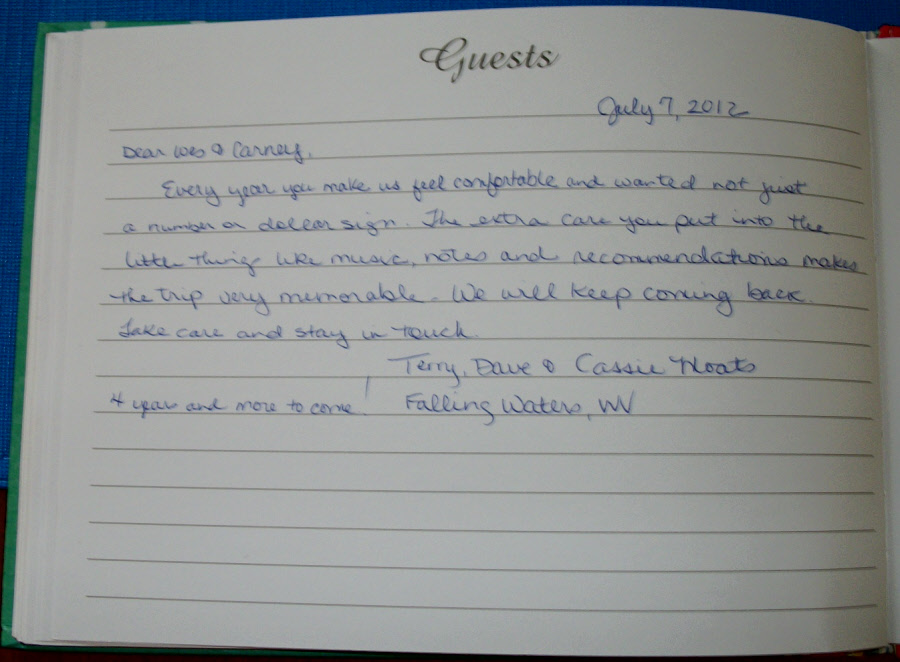 Guests
July 7, 2012
Dear Wes & Carney,
Every year you make us feel comfortable and wanted not just
a number or dollar sign. The extra care you put into the
little things like music, notes and recommendations makes
the trip very memorable. We will keep coming back.
Take care and stay in touch.
Terry, Dave & Cassie
4 years and more to come! Falling Waters, WV